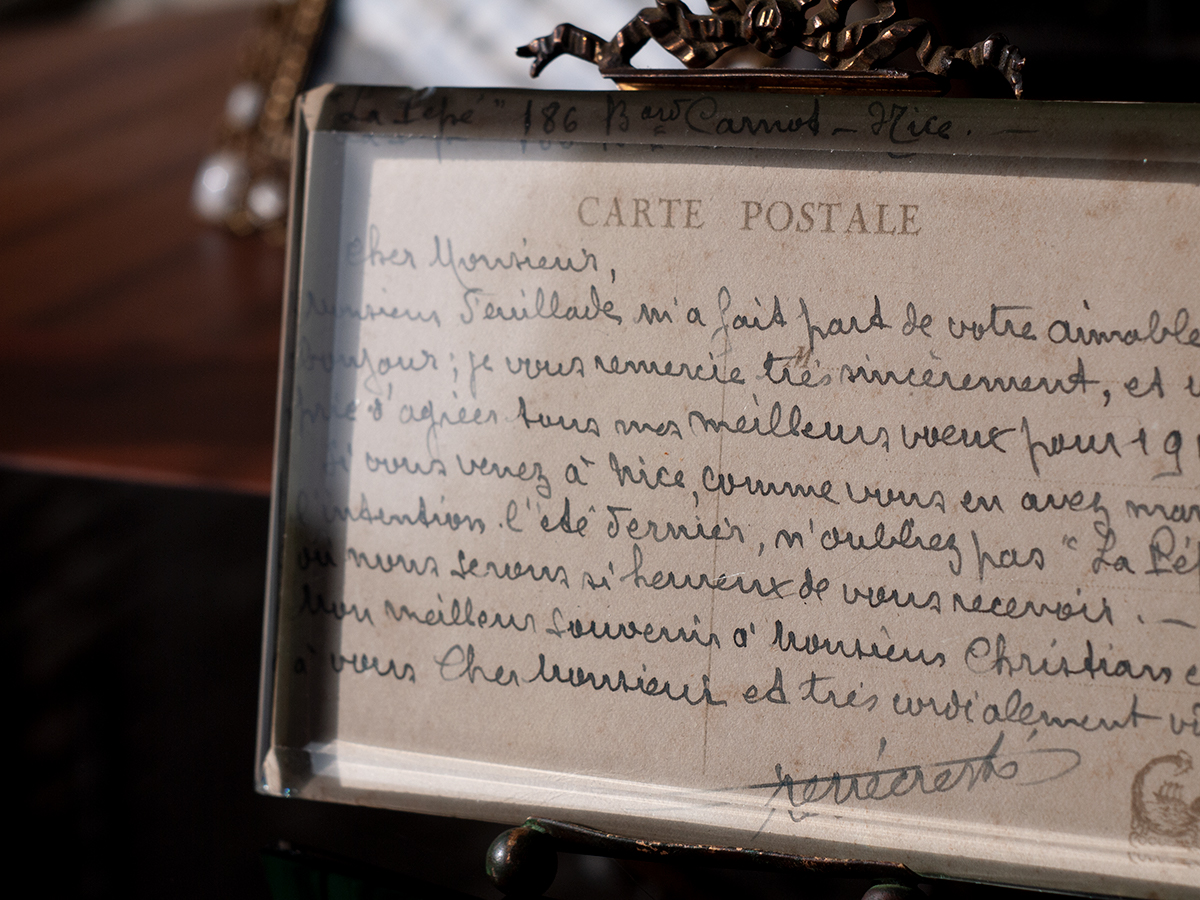 "La Pépé" 186 Bard Carnot - Nice. -
CARTE POSTALE
Cher Monsieur,
Monsieur Feuillade, m'a fait part de votre aimable
bonjour; je vous remercie très sincèrement, et v
prie d'agréer tous mes meilleurs voeux pour 191
Si vous venez à Nice, comme vous en avez man
l'intention l'été dernier, n'oubliez pas "La Pép
où nous serons si heureux de vous recevoir. -
Mon meilleur souvenir à Monsieur Christian e
à vous Cher Monsieur et très cordialement v